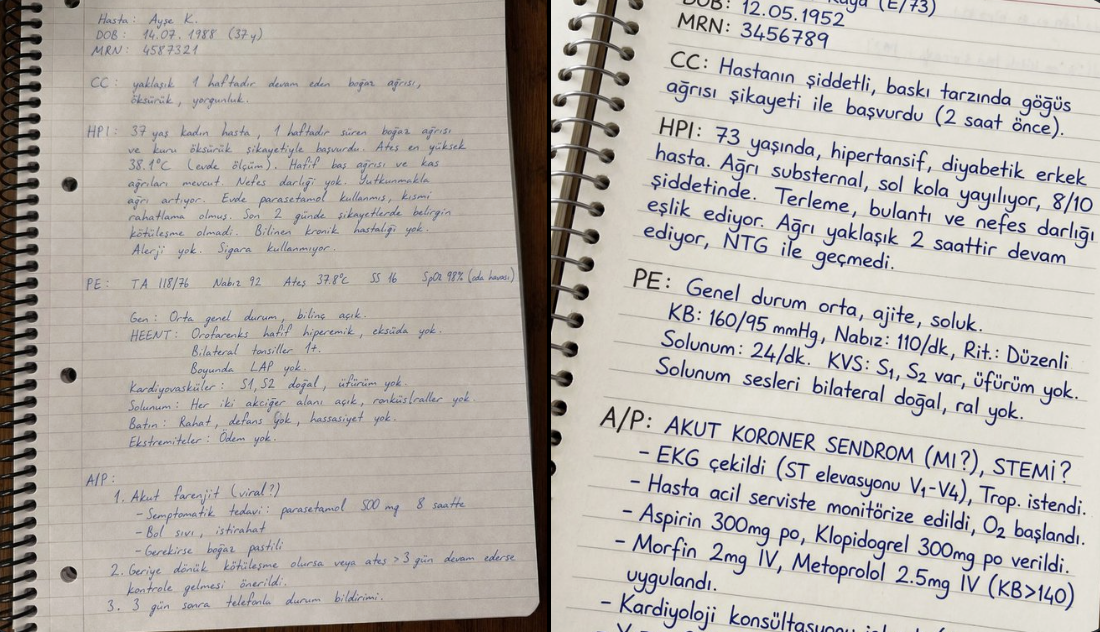 Hasta : Ayşe K.
DOB : 14.07.1988 (37y)
MRN : 4587321
CC : yaklaşık 1 haftadır devam eden boğaz ağrısı,
öksürük, yorgunluk.
HPI : 37 yaş kadın hasta, 1 haftadır süren boğaz ağrısı
ve kuru öksürük şikayetiyle başvurdu. Ateş en yüksek
38.1°C (evde ölçüm). Hafif baş ağrısı ve kas
ağrıları mevcut. Nefes darlığı yok. Yutkunmakla
ağrı artıyor. Evde parasetamol kullanmış, kısmi
rahatlama olmuş. Son 2 günde şikayetlerde belirgin
kötüleşme olmadı. Bilinen kronik hastalığı yok.
Alerji yok. Sigara kullanmıyor.
PE : TA 118/76 Nabız 92 Ateş 37.8°C SS 16 SpO2 98% (oda havası)
Gen : Orta genel durum, bilinç açık.
HEENT : Orofarenks hafif hiperemik, eksüda yok.
Bilateral tonsiller 1+.
Boyunda LAP yok.
Kardiyovasküler : S1, S2 doğal, üfürüm yok.
Solunum : Her iki akciğer alanı açık, ronküs/raller yok.
Batın : Rahat, defans yok, hassasiyet yok.
Ekstremiteler : Ödem yok.
A/P :
1. Akut farenjit (viral?)
- Semptomatik tedavi : parasetamol 500 mg 8 saatte
- Bol sıvı, istirahat
- Gerekirse boğaz pastili
2. Geriye dönük kötüleşme olursa veya ateş >3 gün devam ederse
kontrole gelmesi önerildi.
3. 3 gün sonra telefonla durum bildirimi.
(E/73)
DOB: 12.05.1952
MRN: 3456789
CC: Hastanın şiddetli, baskı tarzında göğüs
ağrısı şikayeti ile başvurdu (2 saat önce).
HPI: 73 yaşında, hipertansif, diyabetik erkek
hasta. Ağrı substernal, sol kola yayılıyor, 8/10
şiddetinde. Terleme, bulantı ve nefes darlığı
eşlik ediyor. Ağrı yaklaşık 2 saattir devam
ediyor, NTG ile geçmedi.
PE: Genel durum orta, ajite, soluk.
KB: 160/95 mmHg, Nabız: 110/dk, Rit.: Düzenli
Solunum: 24/dk. KVS: S₁, S₂ var, üfürüm yok.
Solunum sesleri bilateral doğal, ral yok.
A/P: AKUT KORONER SENDROM (MI?), STEMİ?
- EKG çekildi (ST elevasyonu V₁-V₄), Trop. istendi.
- Hasta acil serviste monitörize edildi, O₂ başlandı.
- Aspirin 300mg po, Klopidogrel 300mg po verildi.
- Morfin 2mg IV, Metoprolol 2.5mg IV (KB>140)
uygulandı.
- Kardiyoloji konsültasyonu